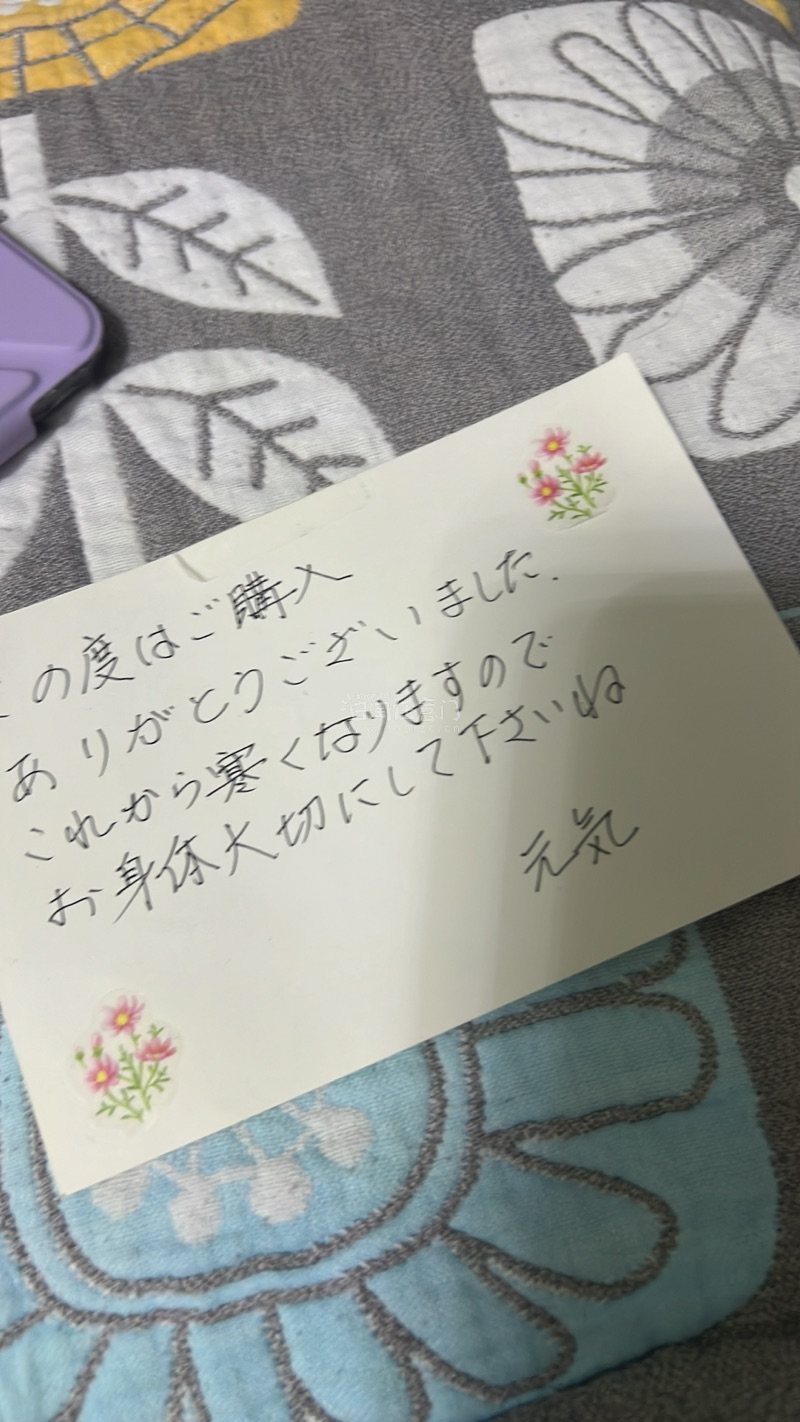 この度はご購入
ありがとうございました.
これから寒くなりますので
お身体大切にして下さいね
元気